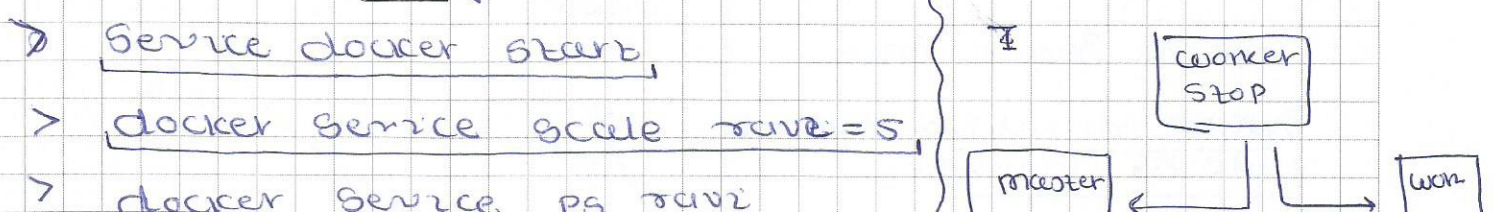 > service docker start
> docker service scale ravi=5
> docker service ps ravi
worker
stop
master
wor